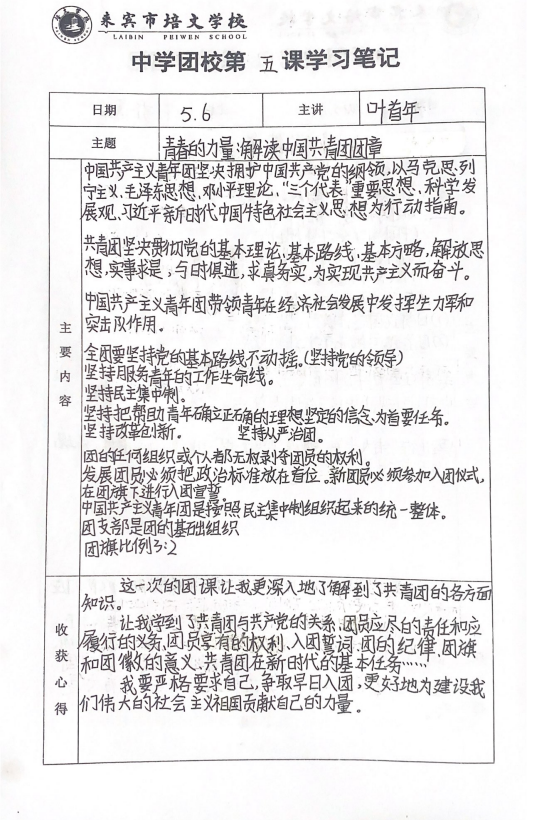 来宾市培文学校
LAIBIN PEIWEN SCHOOL
中学团校第 五 课学习笔记
日期 5.6 主讲 叶首年
主题 青春的力量:解读中国共青团团章
主要内容
中国共产主义青年团坚决拥护中国共产党的纲领,以马克思、列
宁主义、毛泽东思想、邓小平理论、“三个代表”重要思想、科学发
展观、习近平新时代中国特色社会主义思想为行动指南。
共青团坚决贯彻党的基本理论、基本路线、基本方略,解放思
想,实事求是,与时俱进,求真务实,为实现共产主义而奋斗。
中国共产主义青年团带领青年在经济社会发展中发挥生力军和
突击队作用。
全团要坚持党的基本路线不动摇。(坚持党的领导)
坚持服务青年的工作生命线。
坚持民主集中制。
坚持把帮助青年确立正确的理想坚定的信念为首要任务。
坚持改革创新。 坚持从严治团。
团的任何组织或个人都无权剥夺团员的权利。
发展团员必须把政治标准放在首位。新团员必须参加入团仪式,
在团旗下进行入团宣誓。
中国共产主义青年团是按照民主集中制组织起来的统一整体。
团支部是团的基础组织
团旗比例3:2
收获心得
这一次的团课让我更深入地了解到了共青团的各方面
知识。
让我学到了共青团与共产党的关系、团员应尽的责任和应
履行的义务、团员享有的权利、入团誓词、团的纪律、团旗
和团徽的意义、共青团在新时代的基本任务……
我要严格要求自己,争取早日入团,更好地为建设我
们伟大的社会主义祖国贡献自己的力量。